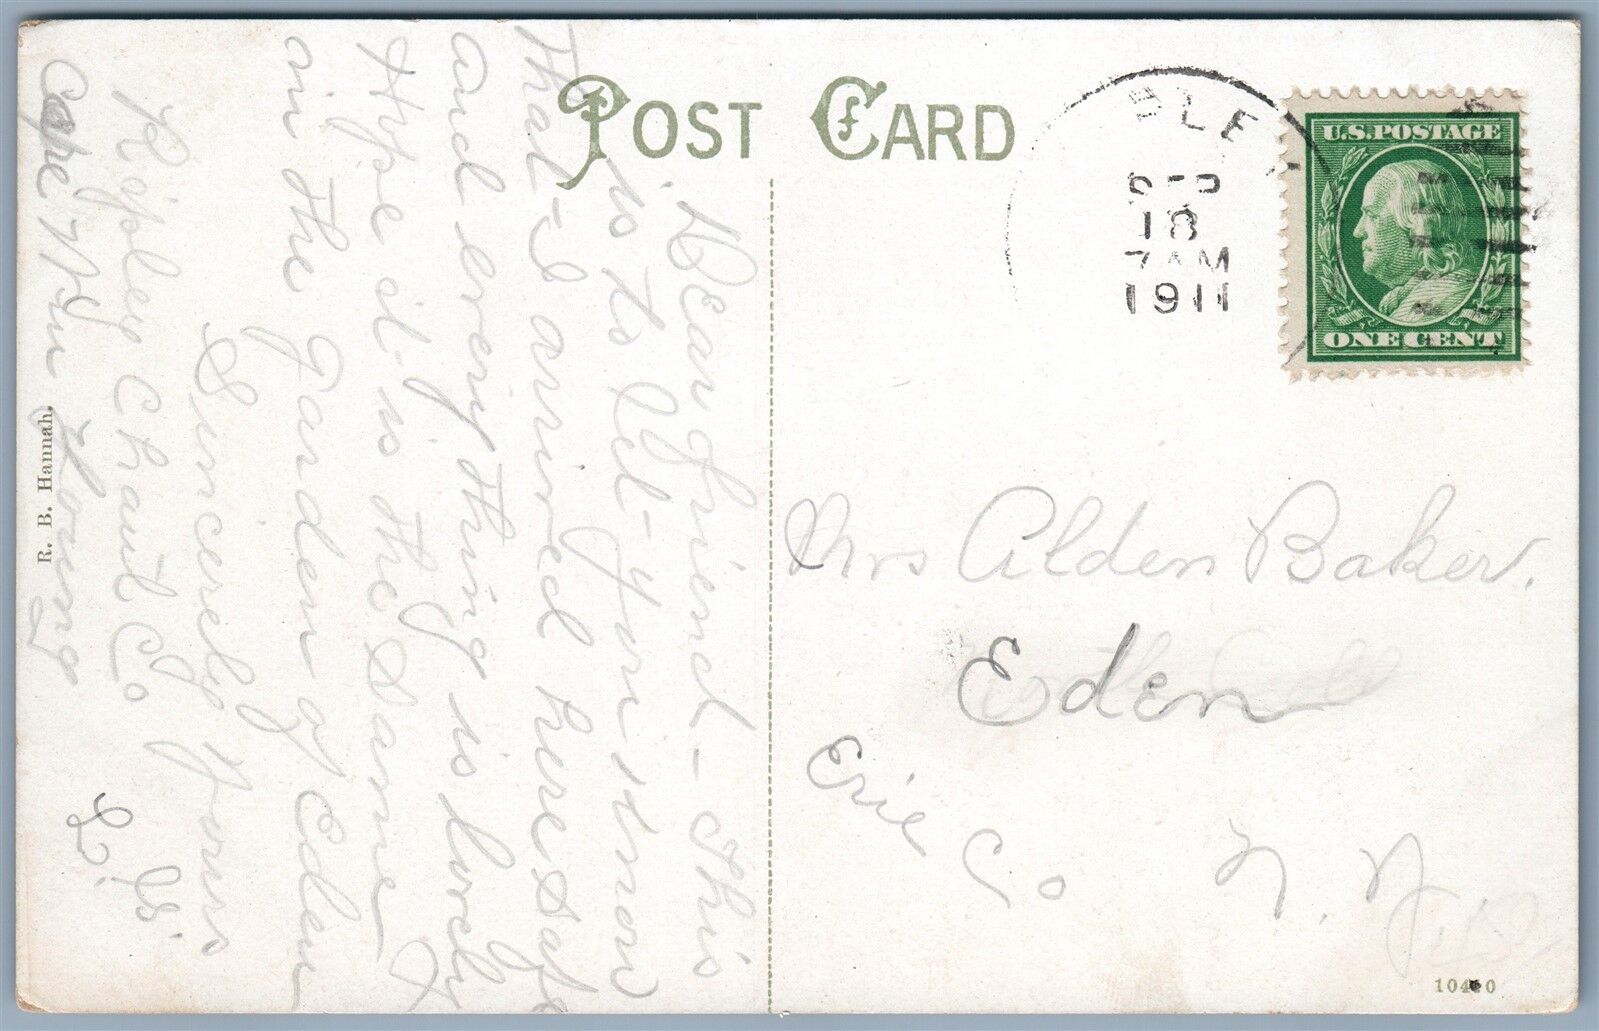 POST CARD
PLEY
SEP
18
7 AM
1911
U.S. POSTAGE
ONE CENT
Dear friend - This
is to let you know
that I arrived here safe
and every thing is lovely
Hype it is the same
in the Garden of Eden
Sincerely Yours
Ripley Chaut Co
R. B. Hannah.
Mrs Alden Baker.
Eden
Erie Co N. Y.
10420